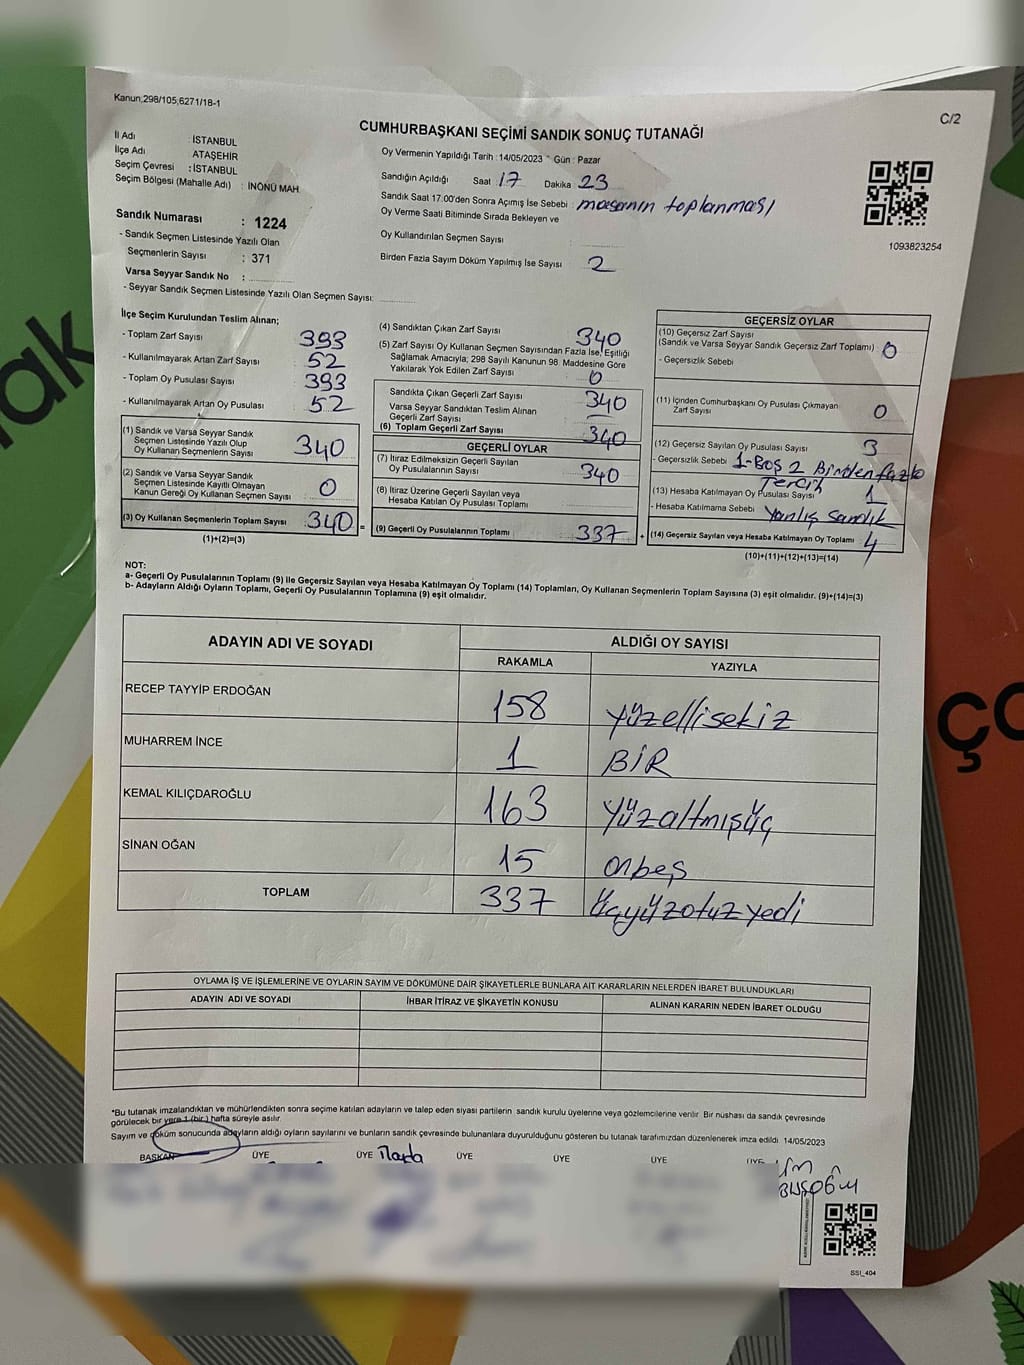 Kanun;298/105,6271/18-1
C/2
CUMHURBAŞKANI SEÇİMİ SANDIK SONUÇ TUTANAĞI
İl Adı : İSTANBUL
İlçe Adı ATAŞEHİR
Seçim Çevresi : İSTANBUL
Seçim Bölgesi (Mahalle Adı) : İNÖNÜ MAH.
Sandık Numarası : 1224
- Sandık Seçmen Listesinde Yazılı Olan
Seçmenlerin Sayısı : 371
Varsa Seyyar Sandık No :
- Seyyar Sandık Seçmen Listesinde Yazılı Olan Seçmen Sayısı:
Oy Vermenin Yapıldığı Tarih : 14/05/2023 Gün : Pazar
Sandığın Açıldığı Saat 17 Dakika 23
Sandık Saat 17.00'den Sonra Açımış İse Sebebi : masanın toplanması
Oy Verme Saati Bitiminde Sırada Bekleyen ve
Oy Kullandırılan Seçmen Sayısı :
Birden Fazla Sayım Döküm Yapılmış İse Sayısı 2
1093823254
İlçe Seçim Kurulundan Teslim Alınan;
- Toplam Zarf Sayısı 393
- Kullanılmayarak Artan Zarf Sayısı 52
- Toplam Oy Pusulası Sayısı 393
- Kullanılmayarak Artan Oy Pusulası 52
(1) Sandık ve Varsa Seyyar Sandık
Seçmen Listesinde Yazılı Olup
Oy Kullanan Seçmenlerin Sayısı 340
(2) Sandık ve Varsa Seyyar Sandık
Seçmen Listesinde Kayıtlı Olmayan
Kanun Gereği Oy Kullanan Seçmen Sayısı 0
(3) Oy Kullanan Seçmenlerin Toplam Sayısı 340 =
(1)+(2)=(3)
(4) Sandıktan Çıkan Zarf Sayısı 340
(5) Zarf Sayısı Oy Kullanan Seçmen Sayısından Fazla İse, Eşitliği
Sağlamak Amacıyla; 298 Sayılı Kanunun 98. Maddesine Göre
Yakılarak Yok Edilen Zarf Sayısı : 0
Sandıkta Çıkan Geçerli Zarf Sayısı 340
Varsa Seyyar Sandıktan Teslim Alınan
Geçerli Zarf Sayısı
(6) Toplam Geçerli Zarf Sayısı 340
GEÇERLİ OYLAR
(7) İtiraz Edilmeksizin Geçerli Sayılan
Oy Pusulalarının Sayısı 340
(8) İtiraz Üzerine Geçerli Sayılan veya
Hesaba Katılan Oy Pusulası Toplamı
(9) Geçerli Oy Pusulalarının Toplamı 337 +
GEÇERSİZ OYLAR
(10) Geçersiz Zarf Sayısı
(Sandık ve Varsa Seyyar Sandık Geçersiz Zarf Toplamı) : 0
- Geçersizlik Sebebi
(11) İçinden Cumhurbaşkanı Oy Pusulası Çıkmayan
Zarf Sayısı 0
(12) Geçersiz Sayılan Oy Pusulası Sayısı 3
- Geçersizlik Sebebi 1-Boş 2 Birden fazla
Tercih
(13) Hesaba Katılmayan Oy Pusulası Sayısı 1
- Hesaba Katılmama Sebebi Yanlış Sandık
(14) Geçersiz Sayılan veya Hesaba Katılmayan Oy Toplamı 4
(10)+(11)+(12)+(13)=(14)
NOT:
a- Geçerli Oy Pusulalarının Toplamı (9) ile Geçersiz Sayılan veya Hesaba Katılmayan Oy Toplamı (14) Toplamları, Oy Kullanan Seçmenlerin Toplam Sayısına (3) eşit olmalıdır. (9)+(14)=(3)
b- Adayların Aldığı Oyların Toplamı, Geçerli Oy Pusulalarının Toplamına (9) eşit olmalıdır.
ADAYIN ADI VE SOYADI ALDIĞI OY SAYISI
RAKAMLA YAZIYLA
RECEP TAYYİP ERDOĞAN 158 yüzellisekiz
MUHARREM İNCE 1 BİR
KEMAL KILIÇDAROĞLU 163 yüzaltmışüç
SİNAN OĞAN 15 onbeş
TOPLAM 337 üçyüzotuzyedi
OYLAMA İŞ VE İŞLEMLERİNE VE OYLARIN SAYIM VE DÖKÜMÜNE DAİR ŞİKAYETLERLE BUNLARA AİT KARARLARIN NELERDEN İBARET BULUNDUKLARI
ADAYIN ADI VE SOYADI İHBAR İTİRAZ VE ŞİKAYETİN KONUSU ALINAN KARARIN NEDEN İBARET OLDUĞU
*Bu tutanak imzalandıktan ve mühürlendikten sonra seçime katılan adayların ve talep eden siyasi partilerin sandık kurulu üyelerine veya gözlemcilerine verilir. Bir nüshası da sandık çevresinde
görülecek bir yere 1 (bir) hafta süreyle asılır.
Sayım ve döküm sonucunda adayların aldığı oyların sayılarını ve bunların sandık çevresinde bulunanlara duyurulduğunu gösteren bu tutanak tarafımızdan düzenlenerek imza edildi. 14/05/2023
BAŞKAN ÜYE ÜYE ÜYE ÜYE ÜYE ÜYE
SSI_404
ak
ço